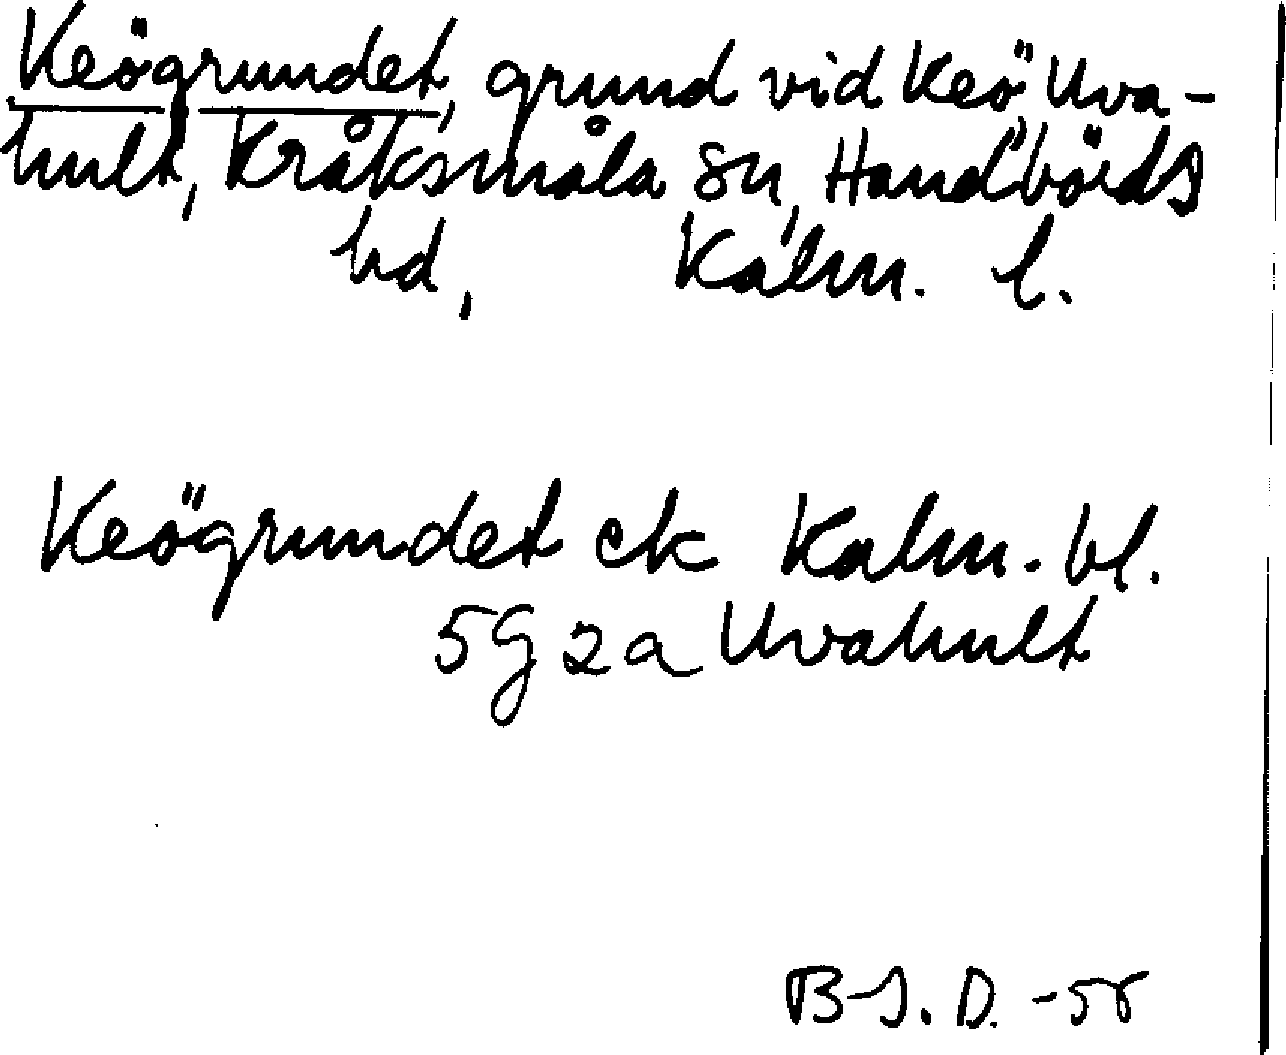 Keögrundet, grund vid Keö, Uva-
hult, Kråksmåla sn, Handbörds
hd, Kalm. l.
Keögrundet ek Kalm. bl.
5G 2a Uvahult
B-J. D.